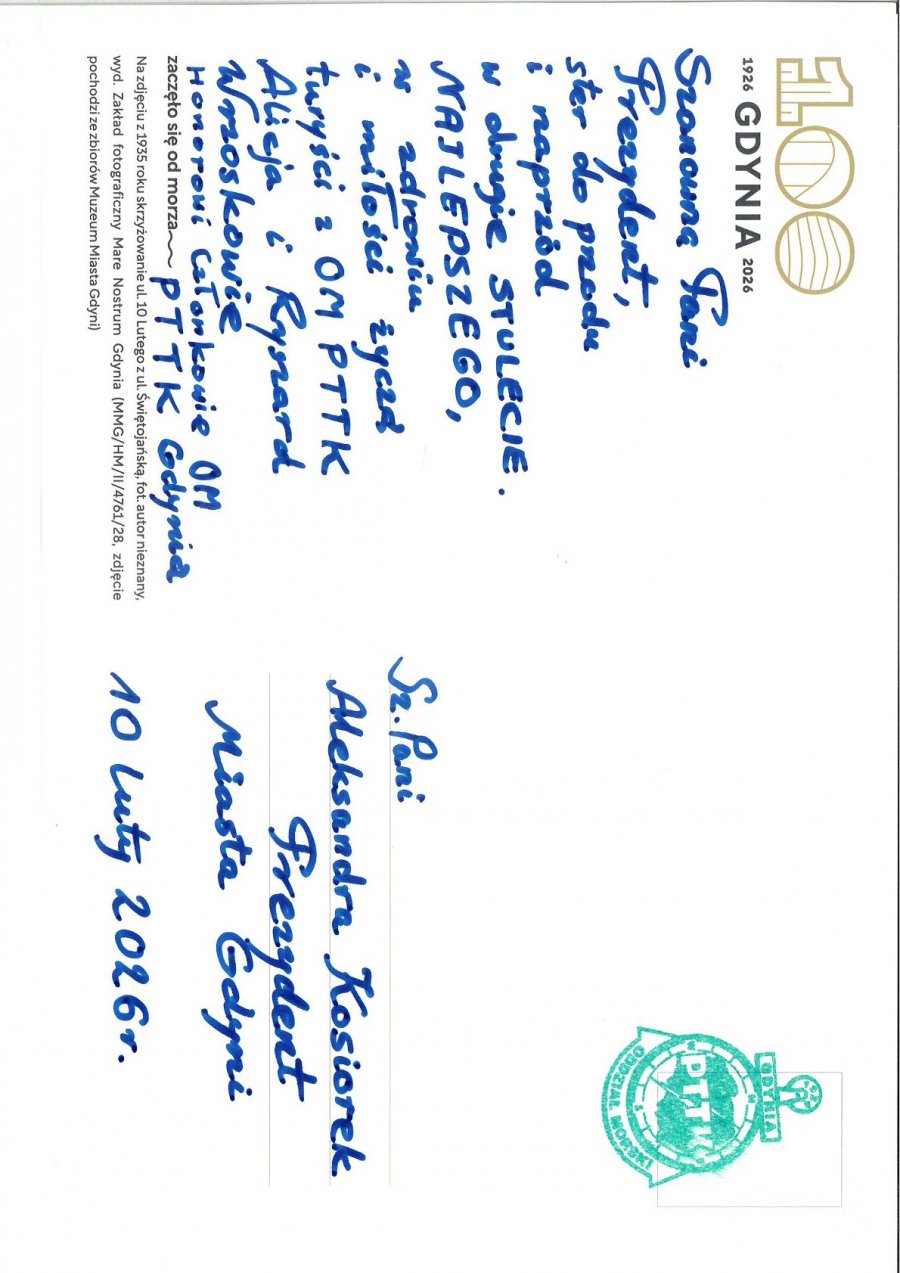 100
1926 GDYNIA 2026
Szanowna Pani
Prezydent,
ster do przodu
i naprzód
w drugie STULECIE.
NAJLEPSZEGO,
w zdrowiu
i miłości życzą
turyści z OM PTTK
Alicja i Ryszard
Wrzoskowie
Honorowi Członkowie OM
PTTK Gdynia
zaczęło się od morza
Na zdjęciu z 1935 roku skrzyżowanie ul. 10 Lutego z ul. Świętojańską, fot. autor nieznany,
wyd. Zakład fotograficzny Mare Nostrum Gdynia (MMG/HM/II/4761/28, zdjęcie
pochodzi ze zbiorów Muzeum Miasta Gdyni)
GDYNIA
PTTK
ODDZIAŁ MORSKI
Sz. Pani
Aleksandra Kosiorek
Prezydent
Miasta Gdyni
10 Luty 2026r.